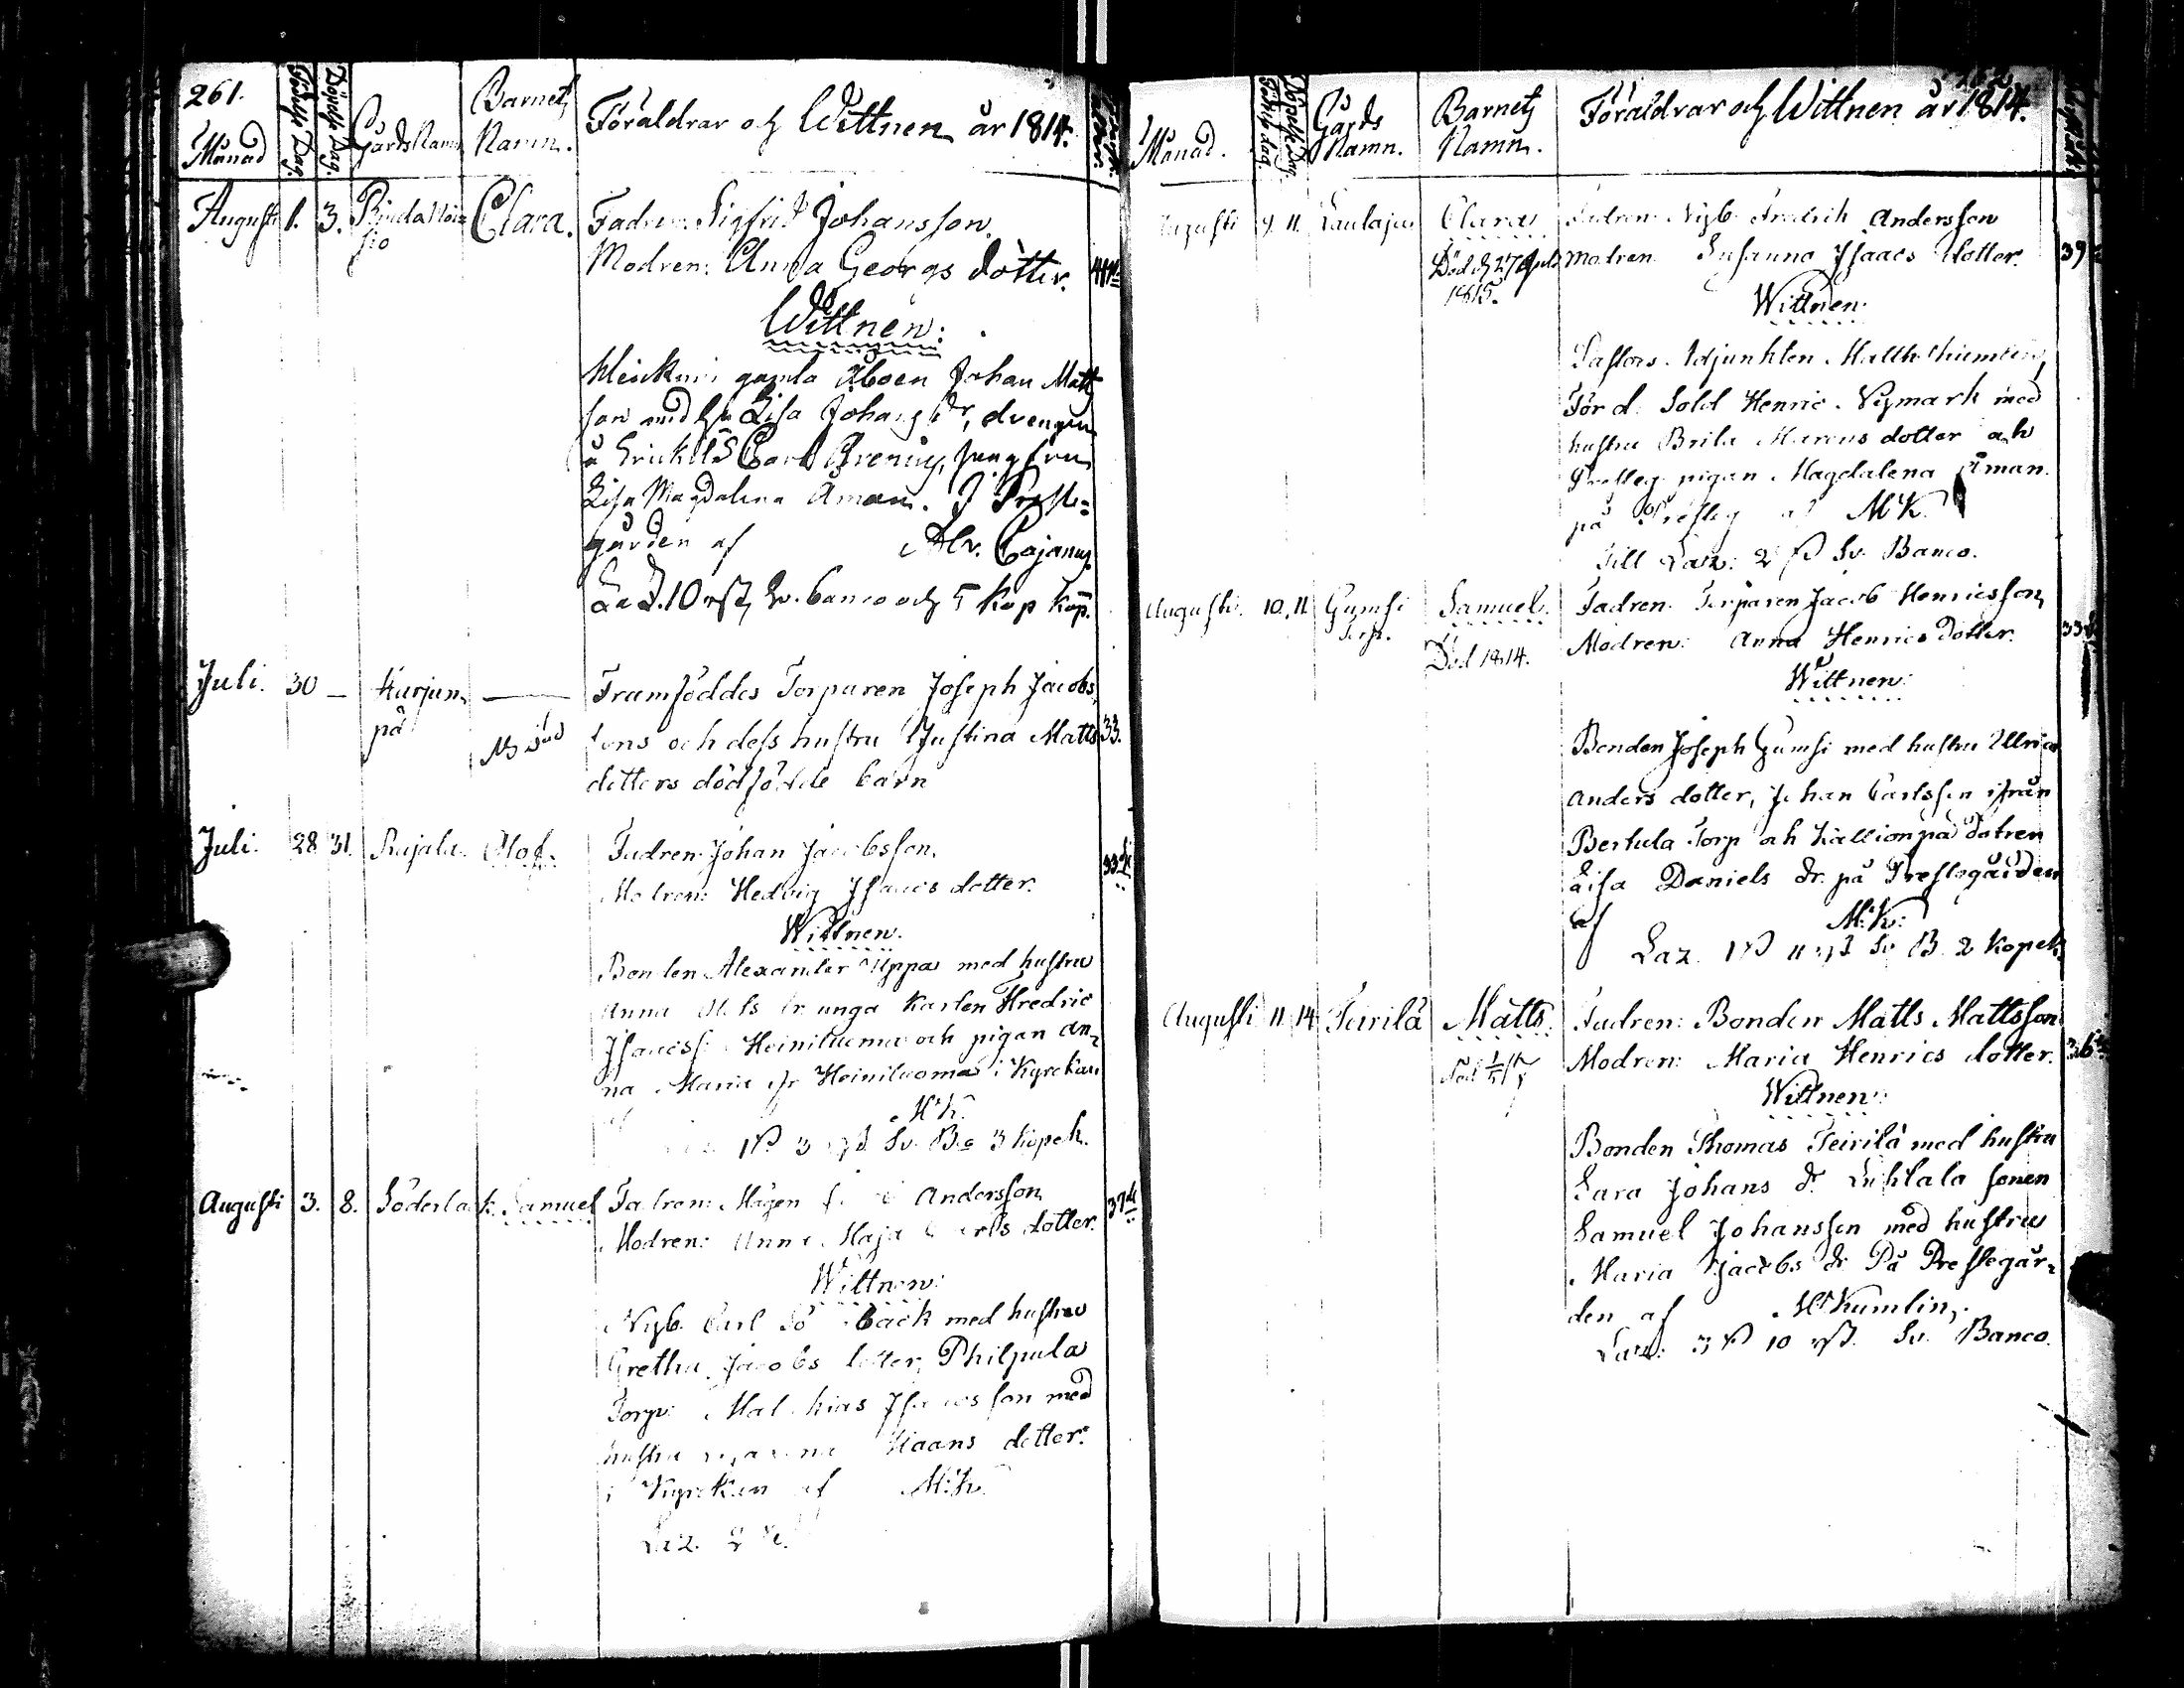 261.
Månad
Födelse Dag.
Döpelse Dag.
Gårds Namn
Barnets Namn.
Föräldrar och Wittnen år 1814.
Augusti 1. 3. Clara. Fadren Sigfrid Johansson.
Modren: Anna Georgs dotter.
Wittnen:
gamla Åboen Johan Matts
son med hu Lisa Johans dr, drengen
Carl Brenius, Jungfru
Lisa Magdalena Åman. I Preste=
gården af Abr. Cajanus
Laz. 10 rst, Sv. banco och 5 kop kopp.
Juli. 30 — Kurjen — Framföddes Torparen Joseph Jacobs
på sons och dess hustru Justina Matts 33.
dotters dödfödde barn
Juli. 28 31. Rajala. Olof. Fadren: Johan Jacobsson.
Modren: Hedvig Isaacs dotter.
Wittnen.
Bonden Alexander Uppa med hustru
Anna dr unga Karlen Fredric
Isaacss Heiniluoma och pigan An=
na Maria dr Heiniluoma i Kyrckan
af M:K.
1 rd 3 rst Sv. Bco 3 kopek.
Augusti 3. 8. Söderback. Samuel Fadren: Mågen Andersson
Modren: Anna Maja Carls dotter. 37
Wittnen:
Nyb. Carl Söderback med hustru
Gretha Jacobs dotter, Philpula
Torp: Malakias Isaacsson med
hustru dotter.
i Kyrckan af M:K.
Laz.
Månad.
Födelse dag.
Döpelse Dag.
Gårds Namn.
Barnets Namn.
Föräldrar och Wittnen år 1814.
Augusti 9. 11. Laulaja Clara Fadren: Nyb. Fredrik Andersson
Död d 27 1815. Modren Susanna Isaacs dotter. 39
Wittnen:
Pastors Adjunkten Matth. Kumlin,
Förd. Sold Henric Nymark med
hustru Brita Marcus dotter och
Presteg. pigan Magdalena Åman.
på Presteg af M:K.
Till Laz: 2 rd Sv. Banco.
Augusti. 10. 11. Gumsi Torp. Samuel. Fadren. Torparen Jacob Henricsson,
Död 1814. Modren: Anna Henrics dotter. 33
Wittnen:
Bonden Joseph Gumsi med hustru Ullrica
Anders dotter, Johan Carlsson ifrån
Bertula Torp och Kallionpää dotren
Lisa Daniels dr. på Prestegården
af M:K:
Laz. 1 rd 11 rst Sv B. 2 kopek
Augusti 11. 14. Teirilä Matts. Fadren: Bonden Matts Mattsson
Död Modren: Maria Henrics dotter. 36
Wittnen:
Bonden Thomas Teirilä med hustru
Sara Johans dr. sonen
Samuel Johansson med hustru
Maria Jacobs dr På Prestegår=
den af M:Kumlin,
Laz: 3 rd 10 rst. Sv. Banco.